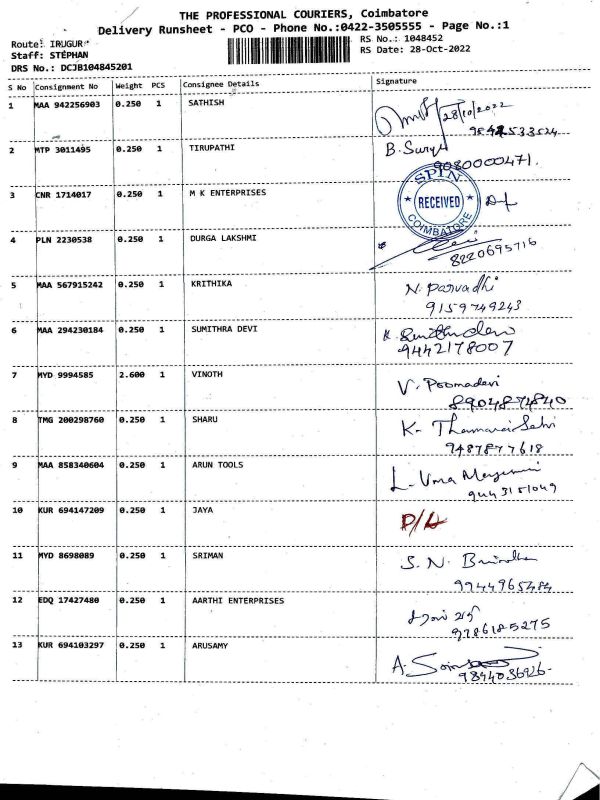 THE PROFESSIONAL COURIERS, Coimbatore
Delivery Runsheet - PCO - Phone No.:0422-3505555 - Page No.:1
Route: IRUGUR
Staff: STEPHAN
DRS No.: DCJB104845201
RS No.: 1048452
RS Date: 28-Oct-2022
S No Consignment No Weight PCS Consignee Details Signature
1 MAA 942256903 0.250 1 SATHISH 28/10/2022
9542533524
2 MTP 3011495 0.250 1 TIRUPATHI B. Surya
9080000471.
3 CNR 1714017 0.250 1 M K ENTERPRISES
SPIN
RECEIVED
COIMBATORE
4 PLN 2230538 0.250 1 DURGA LAKSHMI
8220695716
5 MAA 567915242 0.250 1 KRITHIKA N. parvadhi
9159749243
6 MAA 294230184 0.250 1 SUMITHRA DEVI K
9442178007
7 MYD 9994585 2.600 1 VINOTH V. Poornadevi
8904874840
8 TMG 200298760 0.250 1 SHARU K- Thamarai Selvi
9487877618
9 MAA 858340604 0.250 1 ARUN TOOLS L. Uma
9443151049
10 KUR 694147209 0.250 1 JAYA D/L
11 MYD 8698089 0.250 1 SRIMAN S. N.
9944965484
12 EDQ 17427480 0.250 1 AARTHI ENTERPRISES
9786185275
13 KUR 694103297 0.250 1 ARUSAMY A.
9844036926-